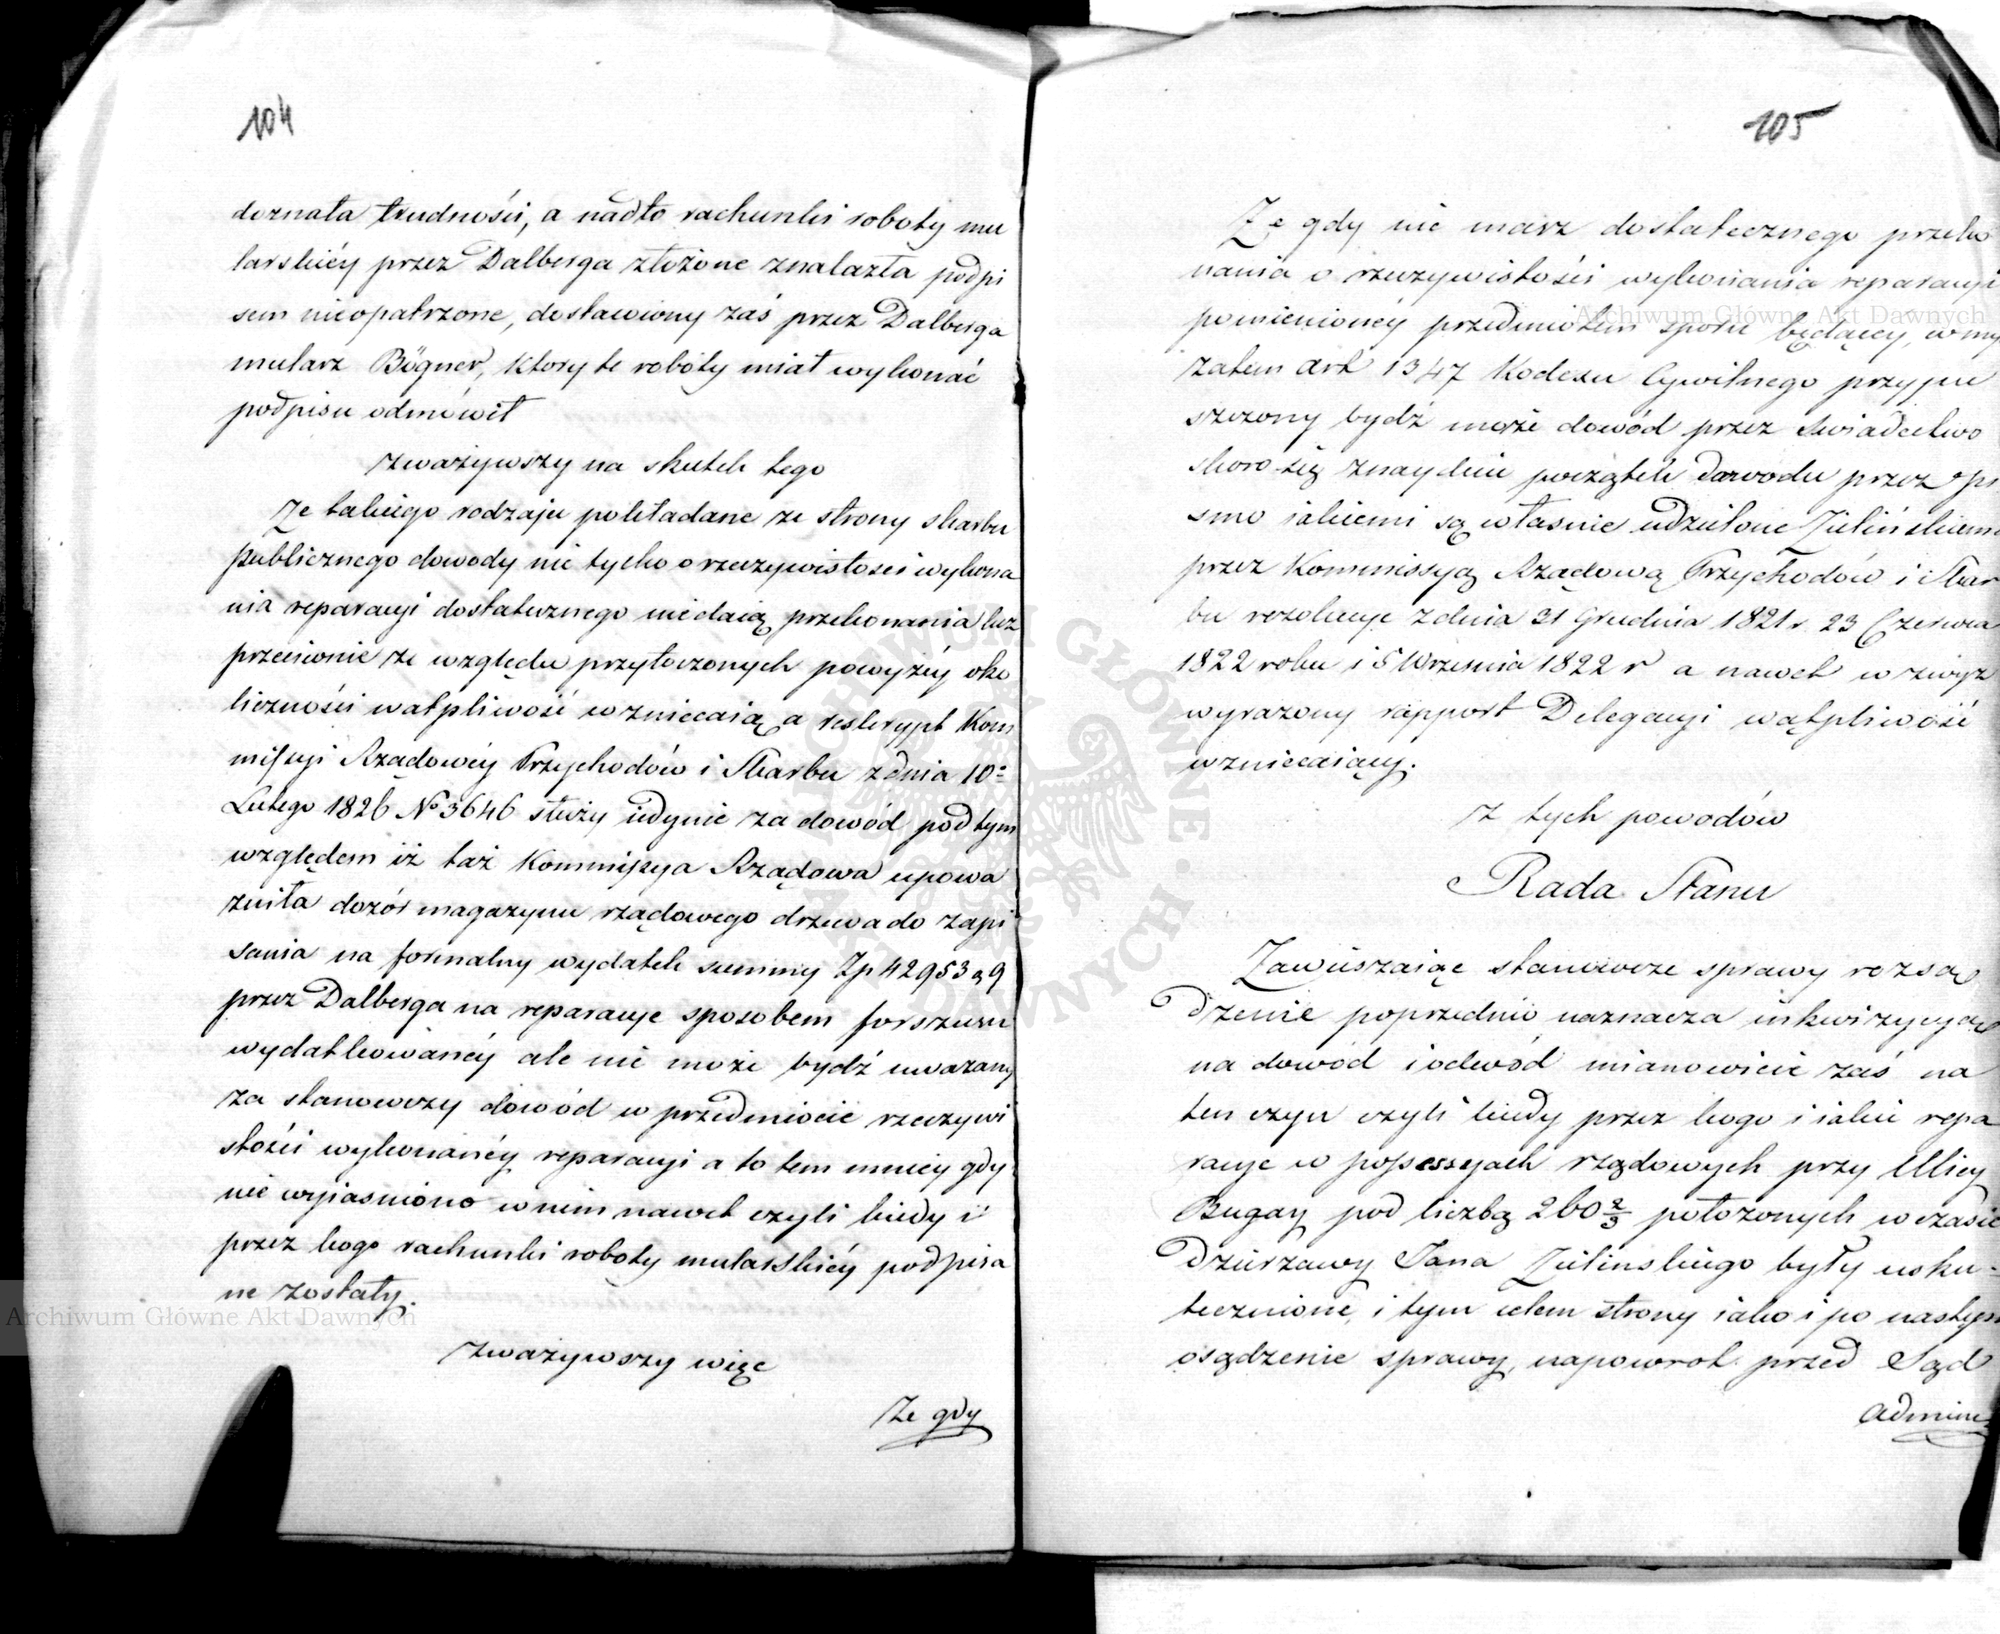 104
doznała trudności, a nadto rachunki roboty mu
larskiéy przez Dalberga złożone znalazła podpi
sem nieopatrzone, dostawiony zaś przez Dalberga
mularz Bögner, który te roboty miał wykonać
podpisu odmówił
zważywszy na skutek tego
Że takiego rodzaju pokładane ze strony skarbu
publicznego dowody nie tycho o rzeczywistości wykona
nia reparacyi dostatecznego niedaią przekonania lecz
przeciwnie ze względu przytoczonych powyżéy oko
liczności wątpliwość wzniecaią a reskrypt Kom
missyi Rządowéy Przychodów i Skarbu z dnia 10º
Lutego 1826 Nº 3646 służy iedynie za dowód pod tym
względem iż taż Kommissya Rządowa upowa
żniła dozór magazynu rządowego drzewa do zapi
sania na formalny wydatek summy Zp 42953 g 9
przez Dalberga na reparacye sposobem forszusu
wydatkowanéy ale nie może bydź uważany
za stanowczy dowód w przedmiocie rzeczywi
stości wykonanéy reparacyi a to tem mniéy gdy
nie wyiaśniono w nim nawet czyli kiedy i
przez kogo rachunki roboty mularskiéy podpisa
ne zostały.
Zważywszy więc
Że gdy
105
Że gdy nie masz dostatecznego przeko
nania o rzeczywistości wykonania reparacyi
pomienionéy przedmiotem sporu będącéy, w my
zatem art 1347 Kodexu Cywilnego przypu
szczony bydź może dowód przez świadectwo
skoro się znayduie początek dowodu przez pi
smo iakiemi są właśnie udzielone Zielińskiemu
przez Kommissyą Rządową Przychodów i Skar
bu rezolucye z dnia 31 Grudnia 1821 r. 23 Czerwca
1822 roku i 5 Września 1822 r a nawet w zwyż
wyrażony rapport Delegacyi wątpliwość
wzniecaiący.
z tych powodów
Rada Stanu
Zawieszaiąc stanowcze sprawy rozsą
dzenie poprzednio naznacza inkwizycyą
na dowód i odwód mianowicie zaś na
ten czyn czyli kiedy przez kogo i iakie repa
racye w possessyach rządowych przy Ulicy
Bugay pod liczbą 260 2/3 położonych w czasie
dzierżawy Jana Zielinskiego były usku-
tecznione, i tym celem strony iako i po nastąpn
osądzenie sprawy, napowrot przed Sąd
Admini
Archiwum Główne Akt Dawnych
Archiwum Główne Akt Dawnych
ARCHIWUM GŁÓWNE AKT DAWNYCH